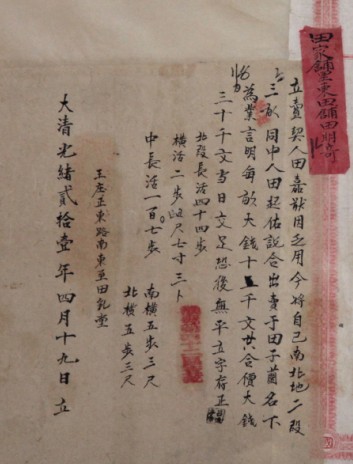 田家鋪里東田鋪田明奇
立賣契人田嘉猷因乏用今將自己南北地二段
三畝同中人田起佑說合出賣于田子蘭名下
為業言明每畝大錢十千文共合價大錢
三十千文當日交足恐後無平立字存正
北段長活四十四步
橫活二步四尺七寸三卜
中長活一百〇七步
南橫五步三尺
北橫五步三尺
王庄正東路南東至田乳堂
大清光緒貳拾壹年四月十九日立